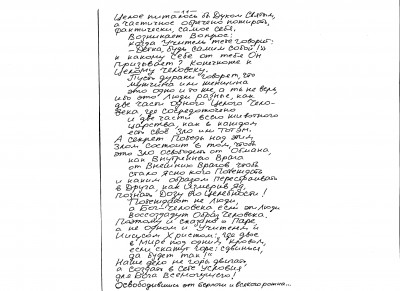 -11-
Целое питалось бы Духом Святым,
а частичное обречено пожирать,
фактически, самое себя.
Возникает Вопрос:
когда Учитель тебе говорит:
- Детка, будь самим собой!»
к какому Себе от тебя Он
призывает? Конечно же к
Целому Человеку.
Пусть дураки говорят, что
мужчина или женщина
это одно и то же, а ты не верь,
ибо это Люди разные, как
две части одного Целого Чело-
века, где сосредоточено
и две части всего животного
царства, как в каждом
есть своё Зло или Тотем.
А секрет Победы над этим
Злом состоит в том, чтобы
это Зло освободить от Обмана,
как Внутреннего Врага
от Внешних Врагов, чтобы
стало ясно кого Побеждать
и каким образом перестраивать
в Друга, как Измерив Яд,
Познать Дозу его Целебности!
Побеждает не Люди,
а Бог-Человека если эти Люди
Воссоздадут Образ Человека.
Поэтому и сказано о Паре
а не одном и Учителем и
Иисусом Христом: где двое
в Мире под одним кровом,
если скажут горе: сдвинься,
да будет так!»
Наше дело не горы двигать,
а создать в себе условия
для Бога Всемогущего!
Освободившись от берлоги и всякого рожна...